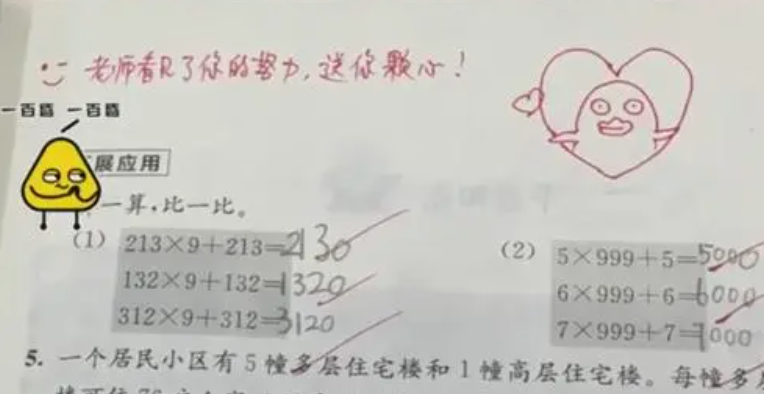 老师看见了你的努力,送你颗心!
一百昏 一百昏
展应用
一算,比一比。
(1) 213×9+213=2130
132×9+132=1320
312×9+312=3120
(2) 5×999+5=5000
6×999+6=6000
7×999+7=7000
5. 一个居民小区有5幢多层住宅楼和1幢高层住宅楼。每幢多